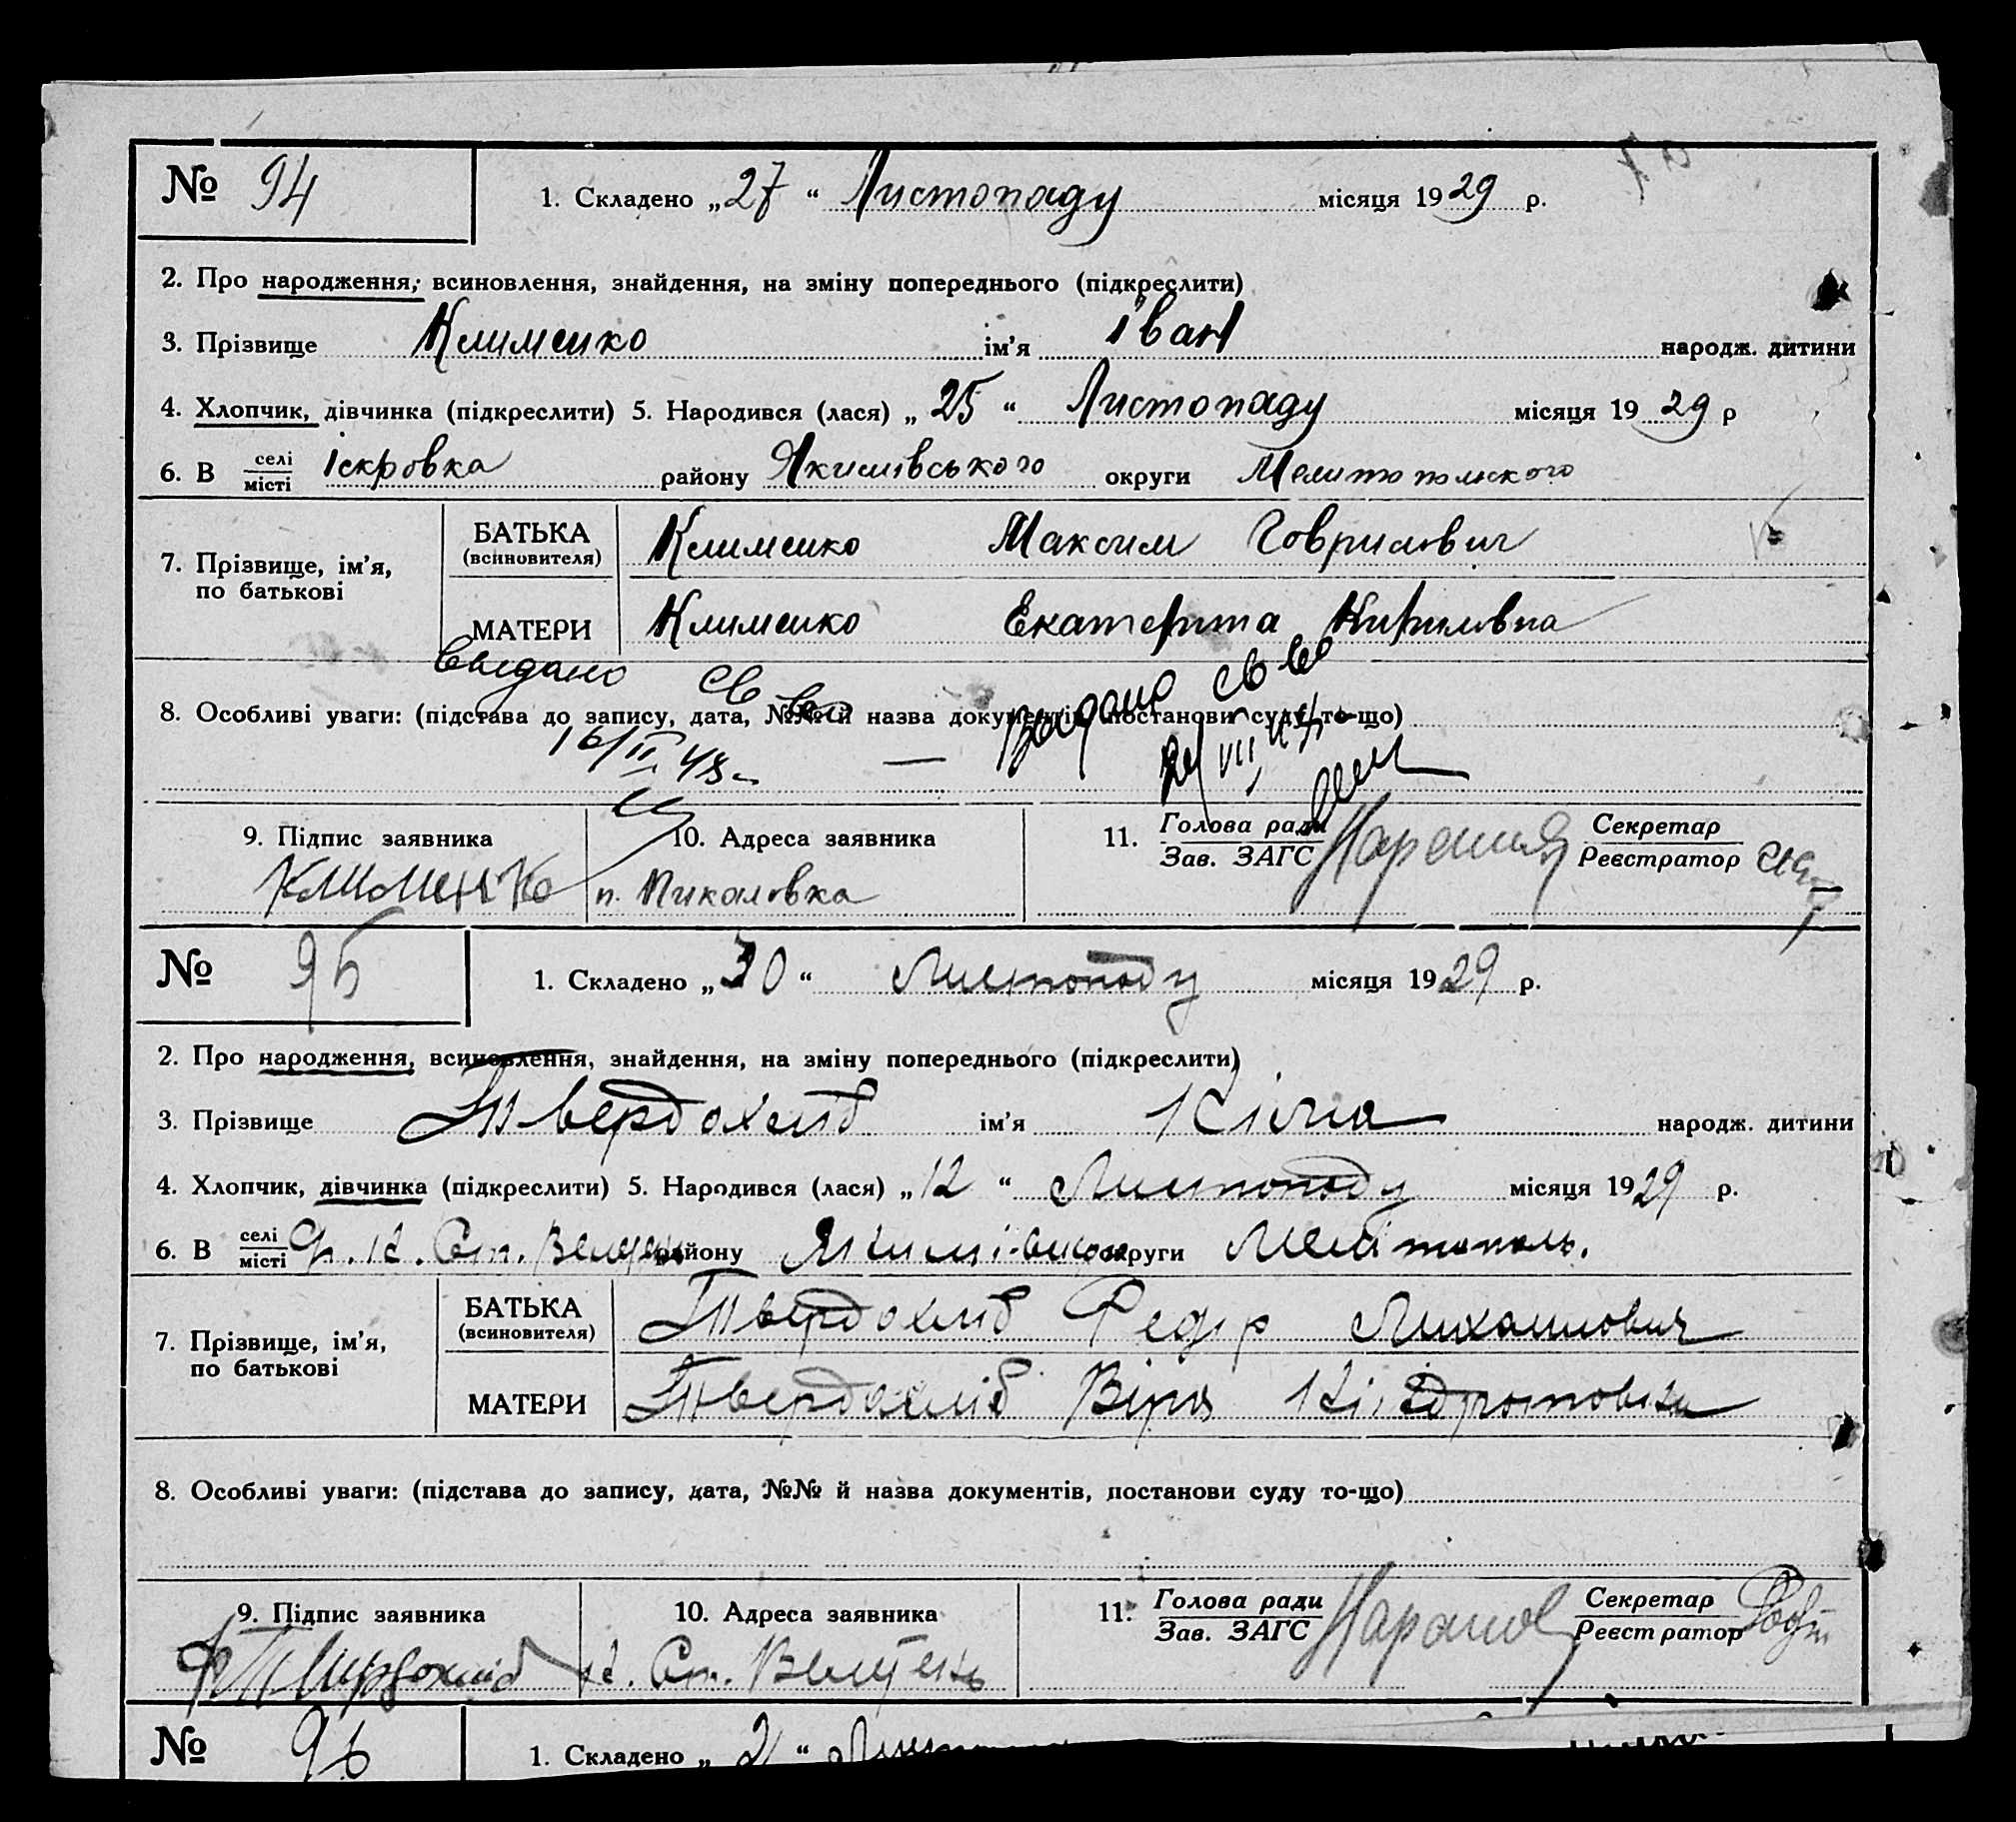 № 94 1. Складено „27“ Листопаду місяця 1929 р.
2. Про народження, всиновлення, знайдення, на зміну попереднього (підкреслити)
3. Прізвище Клименко ім’я Іван народж. дитини
4. Хлопчик, дівчинка (підкреслити) 5. Народився (лася) „25“ Листопаду місяця 1929 р
6. В селі Іскровка району Якимівського округи Мелитопольского
місті
7. Прізвище, ім’я, по батькові
БАТЬКА (всиновителя) Клименко Максим Говрилович
МАТЕРИ Клименко Екатерина Кириловна
Выдано св во Выдано св во
8. Особливі уваги: (підстава до запису, дата, №№ й назва документів, постанови суду то-що)
16/II 48
9. Підпис заявника 10. Адреса заявника 11. Голова ради Секретар
Зав. ЗАГС Реєстратор
Клименко п. Миколовка
№ 95 1. Складено „30“ Листопаду місяця 1929 р.
2. Про народження, всиновлення, знайдення, на зміну попереднього (підкреслити)
3. Прізвище Твердохліб ім’я народж. дитини
4. Хлопчик, дівчинка (підкреслити) 5. Народився (лася) „12“ Листопаду місяця 1929 р.
6. В селі району округи Мелітополь.
місті
7. Прізвище, ім’я, по батькові
БАТЬКА (всиновителя) Твердохліб Федір Михайлович
МАТЕРИ Твердохліб Віра
8. Особливі уваги: (підстава до запису, дата, №№ й назва документів, постанови суду то-що)
9. Підпис заявника 10. Адреса заявника 11. Голова ради Секретар
Зав. ЗАГС Реєстратор
№ 96 1. Складено „